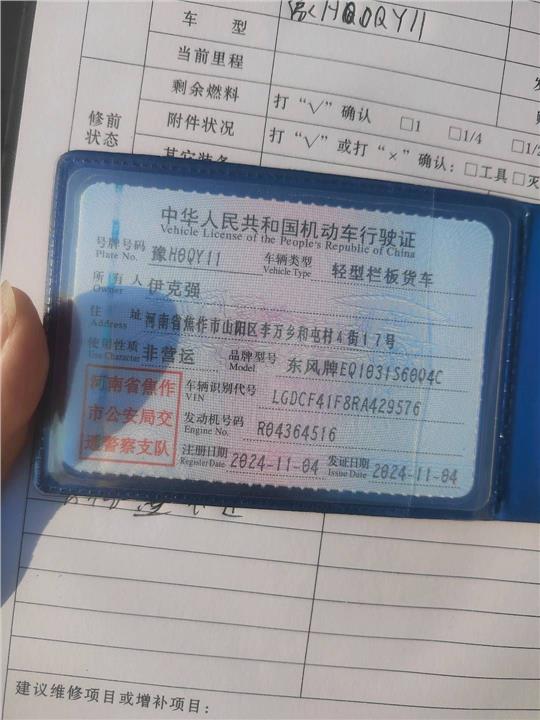 车 型 豫HQ0QY11
当前里程
剩余燃料 打“√”确认 □1 □1/4 □1/2
修前状态
附件状况 打“√”或打“×”确认：□工具 □灭
其它装备
中华人民共和国机动车行驶证
Vehicle License of the People's Republic of China
号牌号码 豫H0QY11 车辆类型 轻型栏板货车
Plate No. Vehicle Type
所有人 伊克强
Owner
住 址 河南省焦作市山阳区李万乡和屯村4街17号
Address
使用性质 非营运 品牌型号 东风牌EQ1031S60Q4C
Use Character Model
河南省焦作市公安局交通警察支队
车辆识别代号 LGDCF41F8RA429576
VIN
发动机号码 R04364516
Engine No.
注册日期 2024-11-04 发证日期 2024-11-04
Register Date Issue Date
建议维修项目或增补项目：